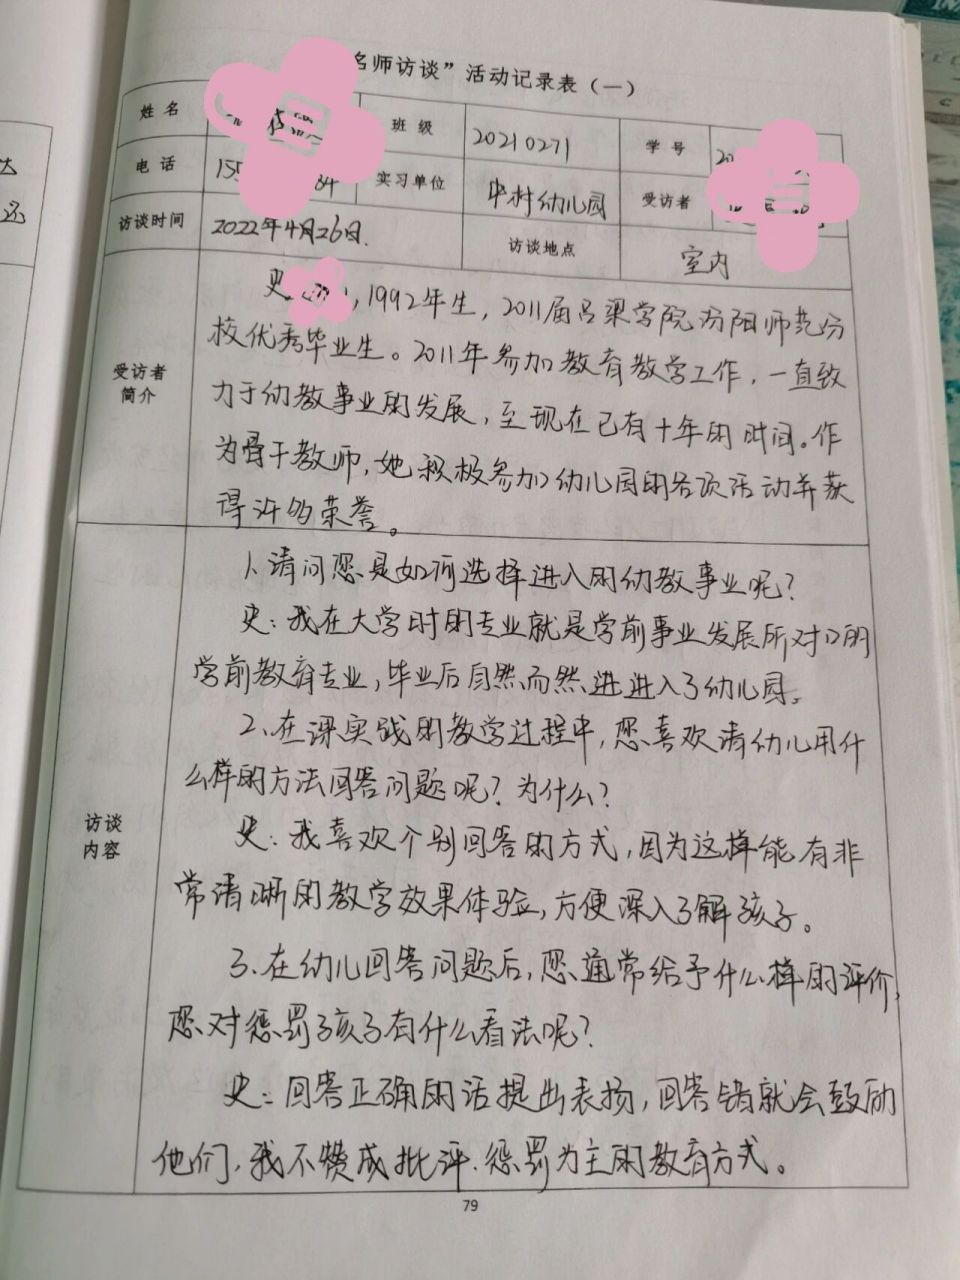 名师访谈”活动记录表（一）
姓名 班级 20210271 学号 20
电话 155 84 实习单位 中村幼儿园 受访者
访谈时间 2022年4月26日. 访谈地点 室内
受访者
简介
史 ，1992年生，2011届吕梁学院汾阳师范分
校优秀毕业生。2011年参加教育教学工作，一直致
力于幼教事业的发展，至现在已有十年的时间。作
为骨干教师，她积极参加幼儿园的各项活动并获
得许多荣誉。
访谈
内容
1、请问您是如何选择进入的幼教事业呢？
史：我在大学时的专业就是学前事业发展所对口的
学前教育专业，毕业后自然而然进进入了幼儿园。
2、在课实践的教学过程中，您喜欢请幼儿用什
么样的方法回答问题呢？为什么？
史：我喜欢个别回答的方式，因为这样能有非
常清晰的教学效果体验，方便深入了解孩子。
3、在幼儿回答问题后，您通常给予什么样的评价，
您对惩罚孩子有什么看法呢？
史：回答正确的话提出表扬，回答错就会鼓励
他们，我不赞成批评、惩罚为主的教育方式。
79